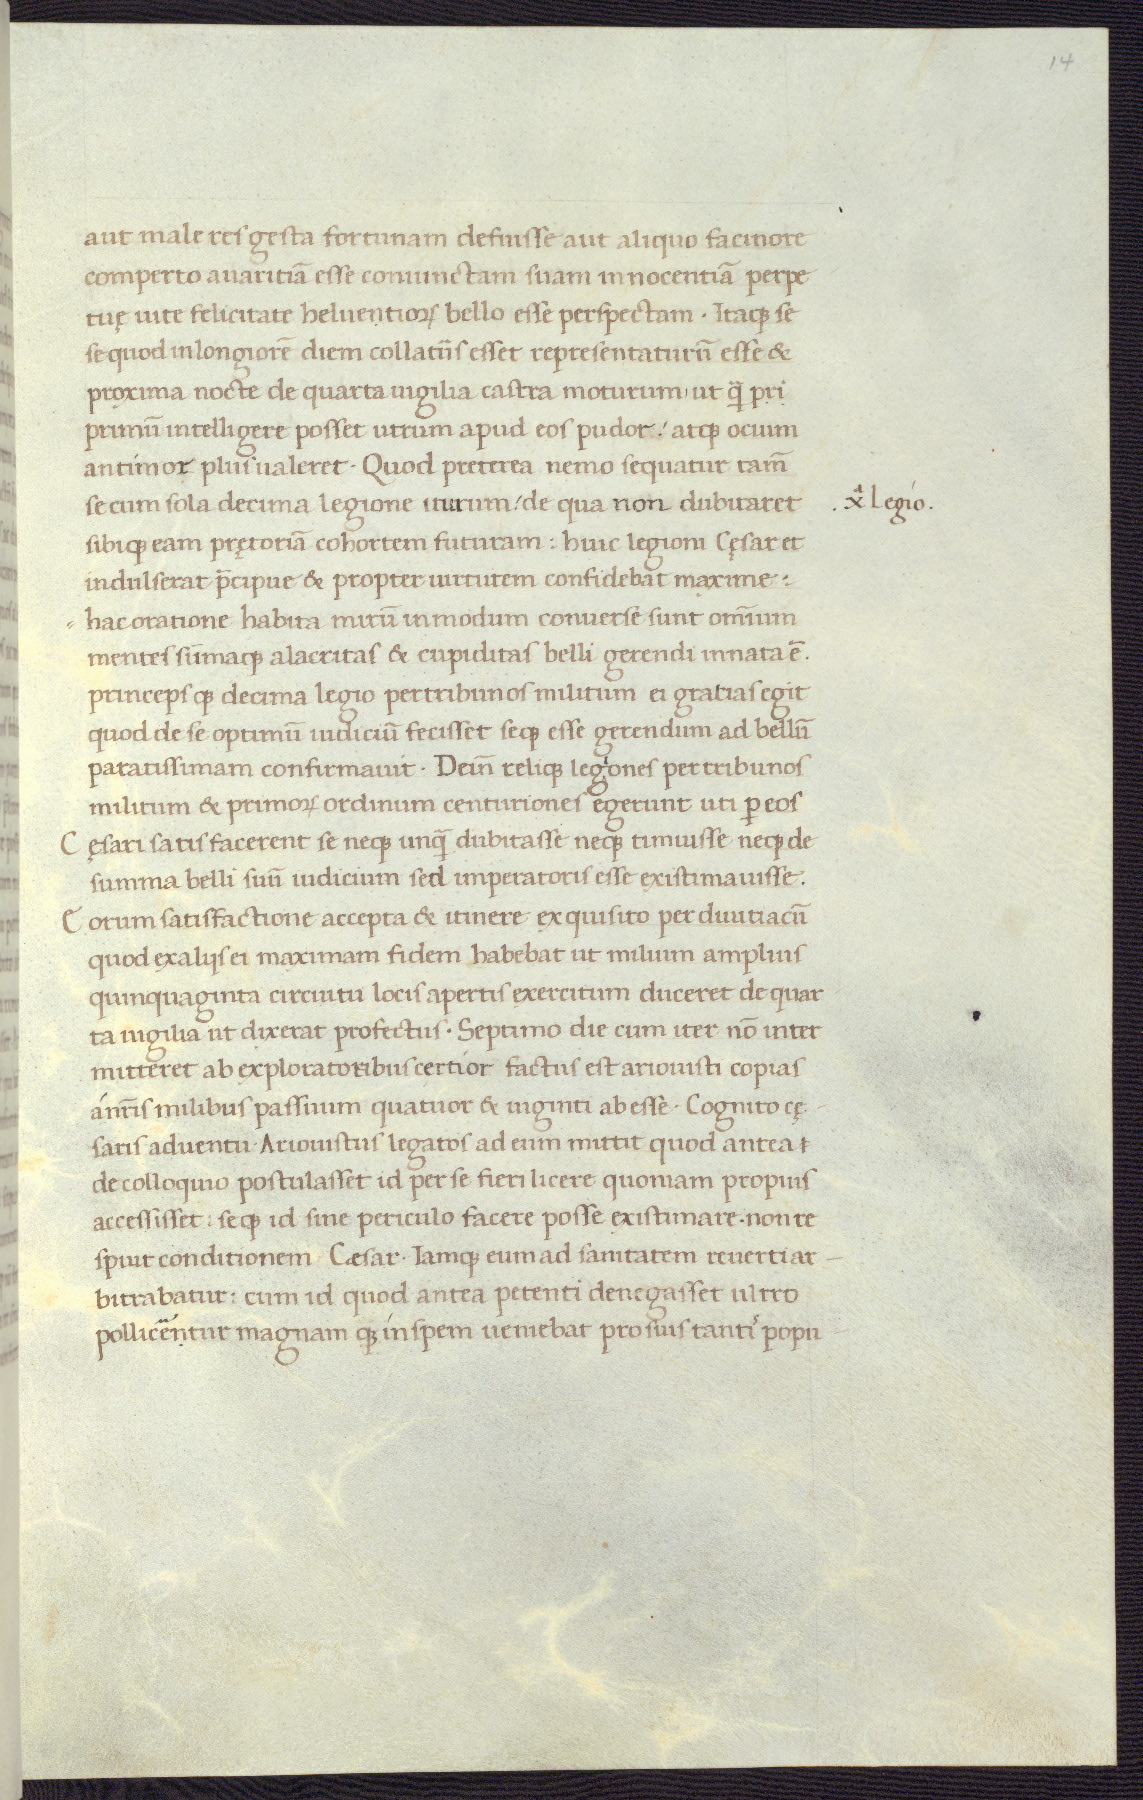 14
aut male res gesta fortunam defuisse aut aliquo facinore
comperto auaritiā esse coniunctam suam innocentiā perpe
tuę uite felicitate heluentioꝝ bello esse perspectam · Itaqꝫ se
se quod in longiorē diem collatūs esset representaturū esse &
proxima nocte de quarta uigilia castra moturum ut q̄ pri
primū intelligere posset utrum apud eos pudor / atqꝫ ocium
an timor plus ualeret · Quod preterea nemo sequatur tam̄
se cum sola decima legione iturum / de qua non dubitaret
. xᵃ Legio .
sibiqꝫ eam prętoriā cohortem futuram : huic legioni Cęsar et
indulserat p̄cipue & propter uirtutem confidebat maxime :
hac oratione habita mirū in modum conuerse sunt om̄ium
mentes sūmaqꝫ alacritas & cupiditas belli gerendi innata ē .
princeps qꝫ decima legio per tribunos militum ei gratias egit
quod de se optimū iudiciū fecisset seqꝫ esse gerendum ad bellū
paratissimam confirmauit · Dein̄ reliqꝫ legiones per tribunos
militum & primoꝝ ordinum centuriones egerunt uti ꝑ eos
Cęsari satis facerent se neqꝫ unq̄ dubitasse neqꝫ timuisse neqꝫ de
summa belli suū iudicium sed imperatoris esse existimauisse .
Eorum satisfactione accepta & itinere exquisito per duutiacū
quod ex alijs ei maximam fidem habebat ut milium amplius
quinquaginta circuitu locis apertis exercitum duceret de quar
ta uigilia ut dixerat profectus · Septimo die cum iter nō inter
mitteret ab exploratoribus certior factus est ariouisti copias
a nr̄is milibus passuum quatuor & uiginti abesse · Cognito cę
saris aduentu Ariouistus legatos ad eum mittit quod antea
de colloquio postulasset id per se fieri licere quoniam propius
accessisset : seqꝫ id sine periculo facere posse existimare · non re
spuit conditionem Cæsar · Iamqꝫ eum ad sanitatem reuerti ar
bitrabatur : cum id quod antea petenti denegasset ultro
pollicentur magnam qꝫ in spem ueniebat pro suis tanti popu